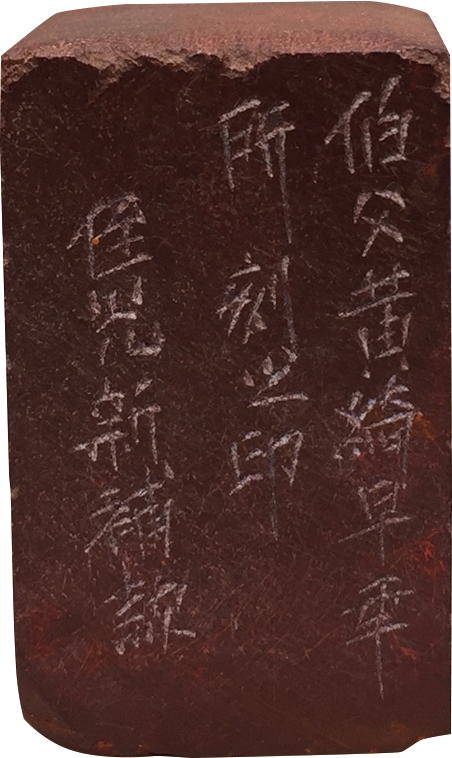 伯父黄綺早年
所刻之印
侄兒新補款